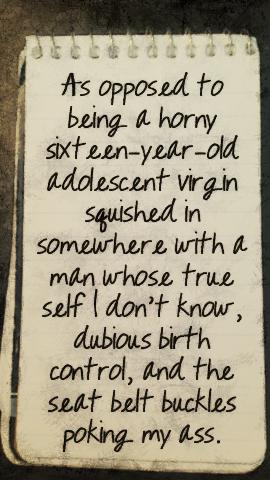 As opposed to
being a horny
sixteen-year-old
adolescent virgin
squished in
somewhere with a
man whose true
self I don't know,
dubious birth
control, and the
seat belt buckles
poking my ass.